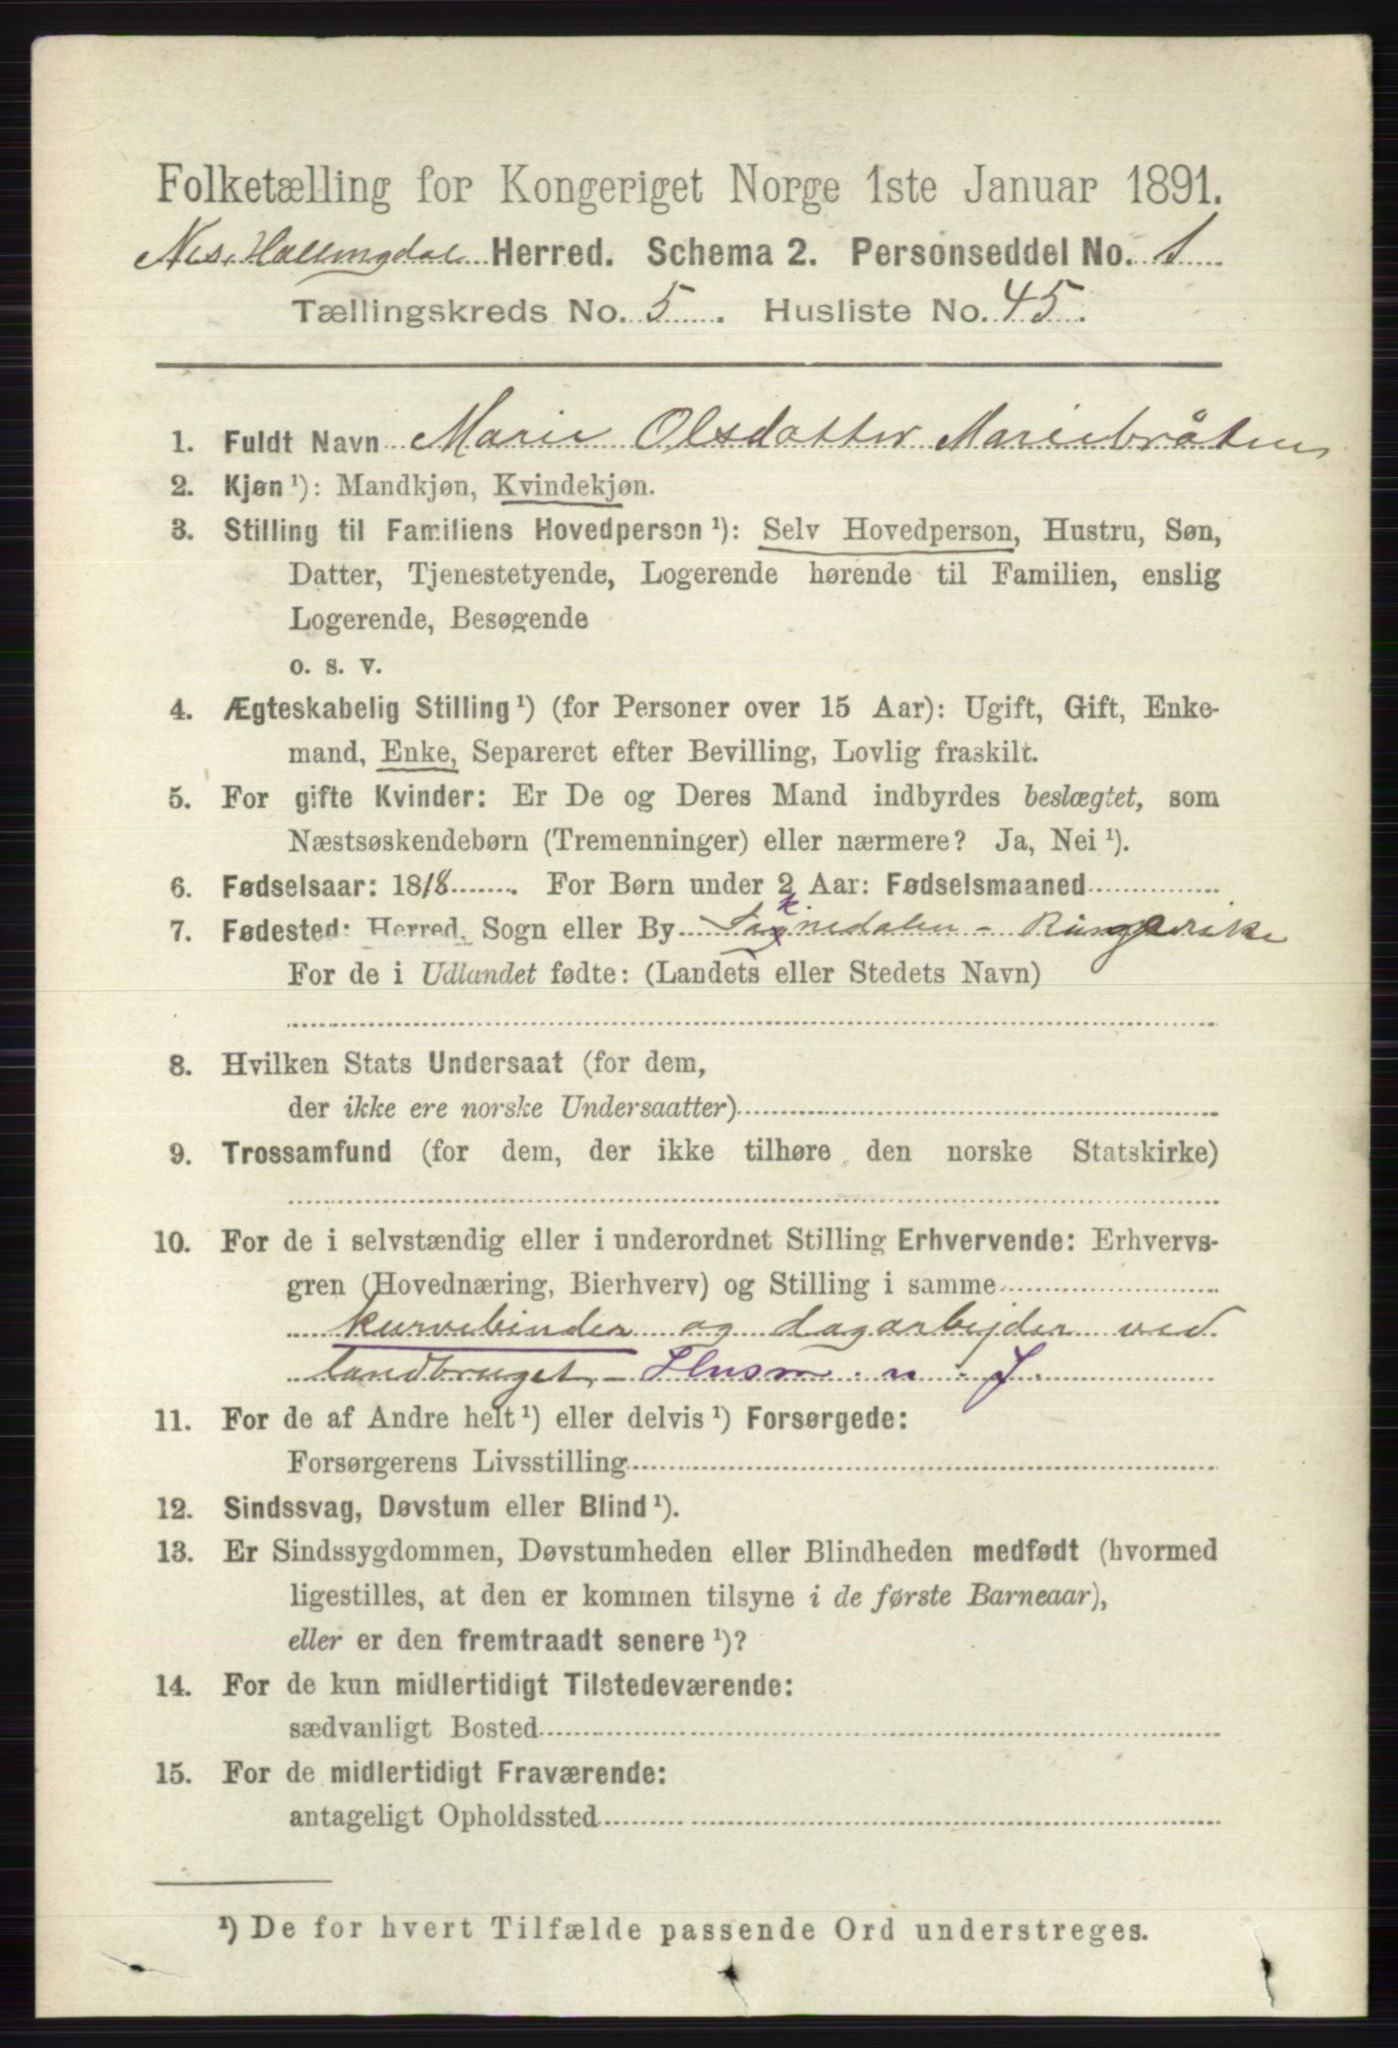 Folketælling for Kongeriget Norge 1ste Januar 1891.
Nes, Hallingdal Herred. Schema 2. Personseddel No. 1
Tællingskreds No. 5. Husliste No. 45.
1. Fuldt Navn Marie Olsdatter Mariebråten
2. Kjøn ¹): Mandkjøn, Kvindekjøn.
3. Stilling til Familiens Hovedperson ¹): Selv Hovedperson, Hustru, Søn,
Datter, Tjenestetyende, Logerende hørende til Familien, enslig
Logerende, Besøgende
o. s. v.
4. Ægteskabelig Stilling ¹) (for Personer over 15 Aar): Ugift, Gift, Enke-
mand, Enke, Separeret efter Bevilling, Lovlig fraskilt.
5. For gifte Kvinder: Er De og Deres Mand indbyrdes beslægtet, som
Næstsøskendebørn (Tremenninger) eller nærmere? Ja, Nei ¹).
6. Fødselsaar: 1818. For Børn under 2 Aar: Fødselsmaaned
7. Fødested: Herred, Sogn eller By Soknedalen - Ringerike
For de i Udlandet fødte: (Landets eller Stedets Navn)
8. Hvilken Stats Undersaat (for dem,
der ikke ere norske Undersaatter)
9. Trossamfund (for dem, der ikke tilhøre den norske Statskirke)
10. For de i selvstændig eller i underordnet Stilling Erhvervende: Erhvervs-
gren (Hovednæring, Bierhverv) og Stilling i samme
kurvebinder og dagarbejder ved
landbruget - Husm. u. J.
11. For de af Andre helt ¹) eller delvis ¹) Forsørgede:
Forsørgerens Livsstilling
12. Sindssvag, Døvstum eller Blind ¹).
13. Er Sindssygdommen, Døvstumheden eller Blindheden medfødt (hvormed
ligestilles, at den er kommen tilsyne i de første Barneaar),
eller er den fremtraadt senere ¹)?
14. For de kun midlertidigt Tilstedeværende:
sædvanligt Bosted
15. For de midlertidigt Fraværende:
antageligt Opholdssted
¹) De for hvert Tilfælde passende Ord understreges.